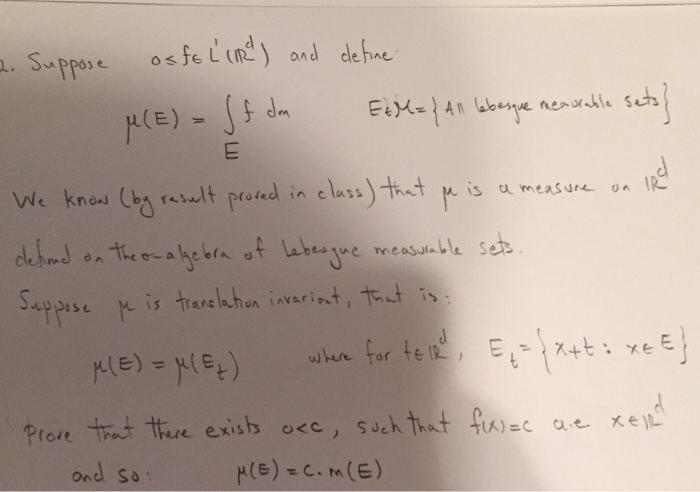 2. Suppose 0≤f∈L¹(ℝᵈ) and define:
μ(E) = ∫_E f dm E∈M = {All lebesgue measurable sets}
We know (by result proved in class) that μ is a measure on ℝᵈ
defined on the σ-algebra of Lebesgue measurable sets.
Suppose μ is translation invariant, that is:
μ(E) = μ(E_t) where for t∈ℝᵈ, E_t = {x+t : x∈E}
Prove that there exists 0<c, such that f(x)=c a.e. x∈ℝᵈ
and so: μ(E) = c. m(E)